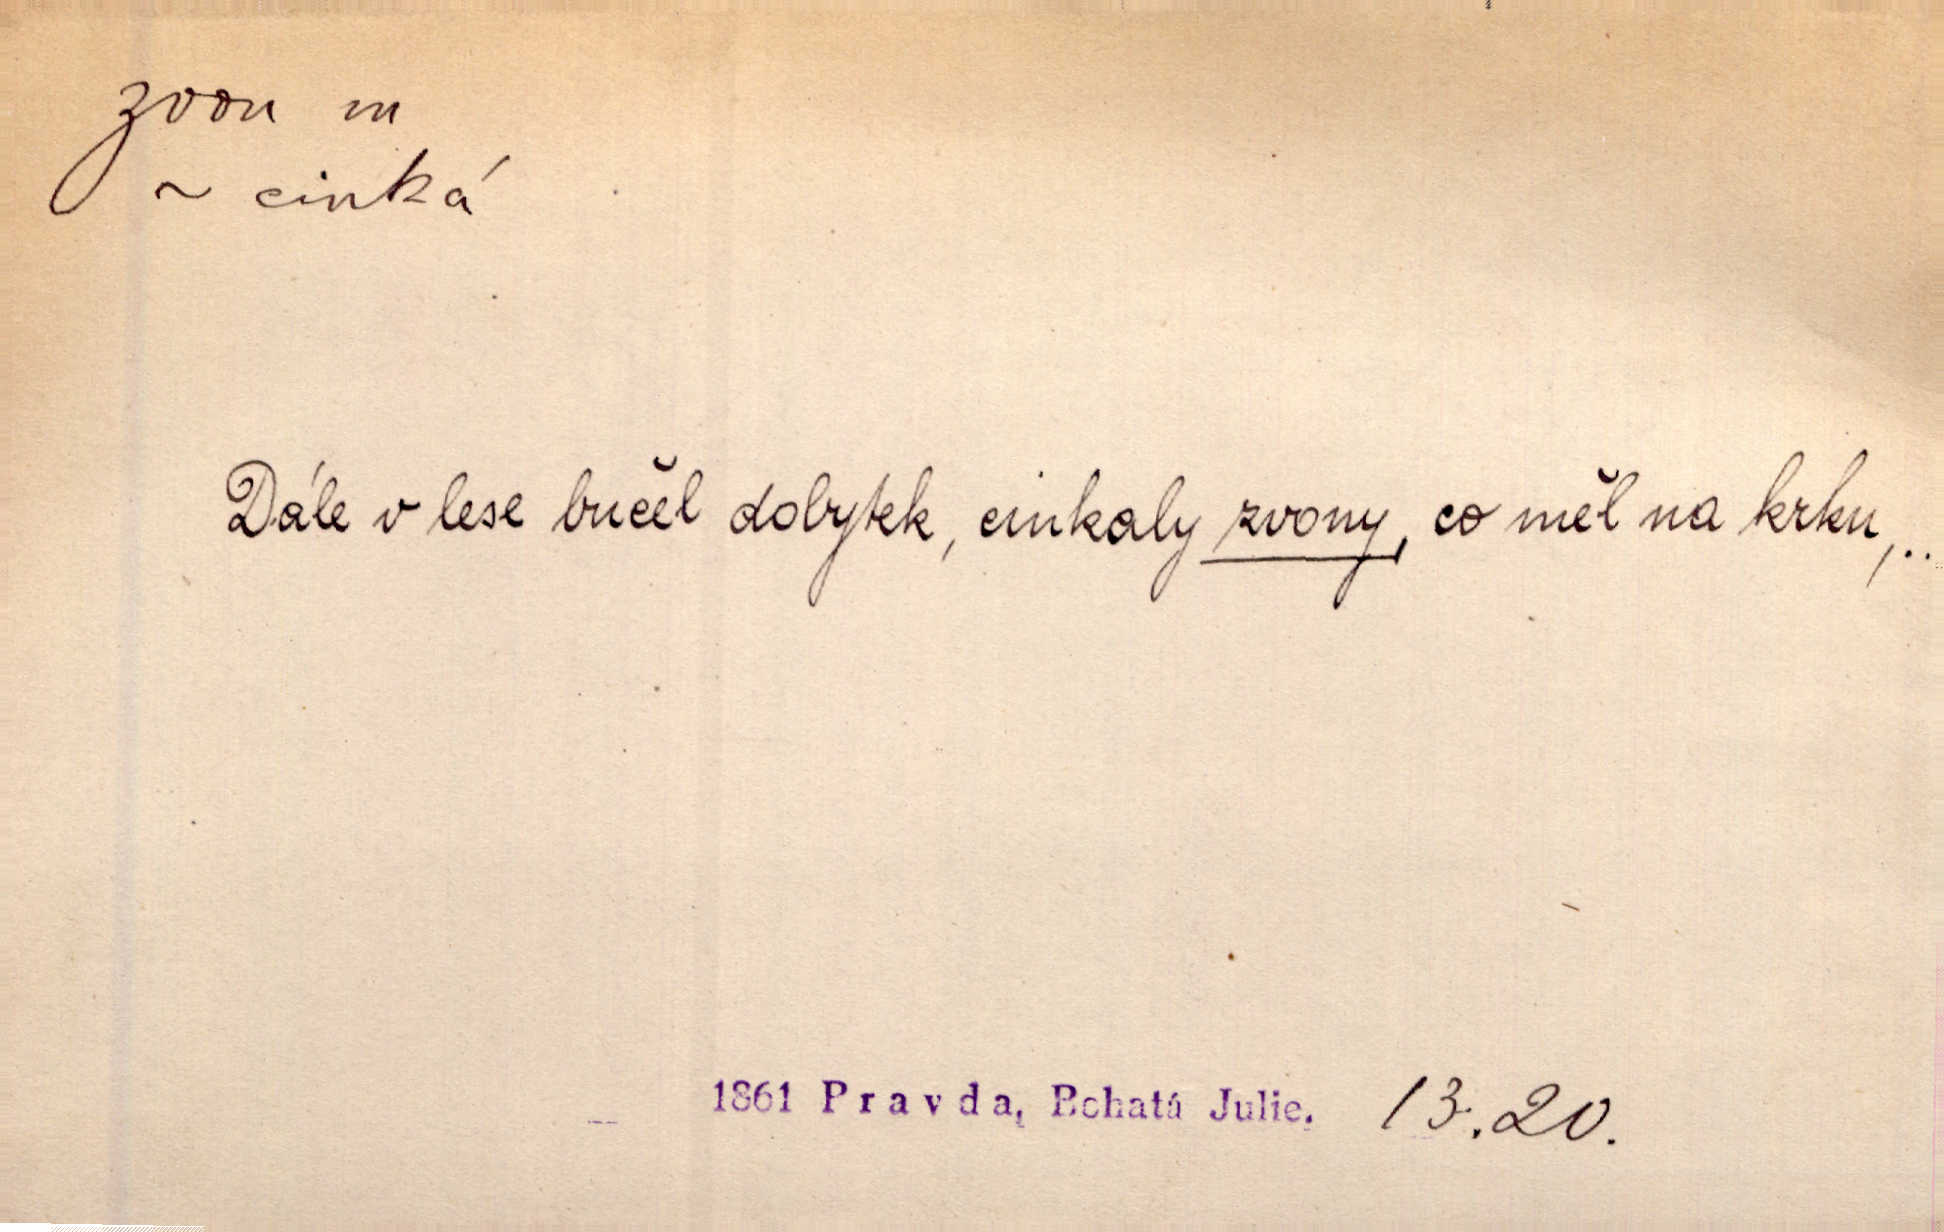 zvon m
~ cinká
Dále v lese bučel dobytek, cinkaly zvony, co měl na krku,..
1861 Pravda, Bohatá Julie. 13. 20.